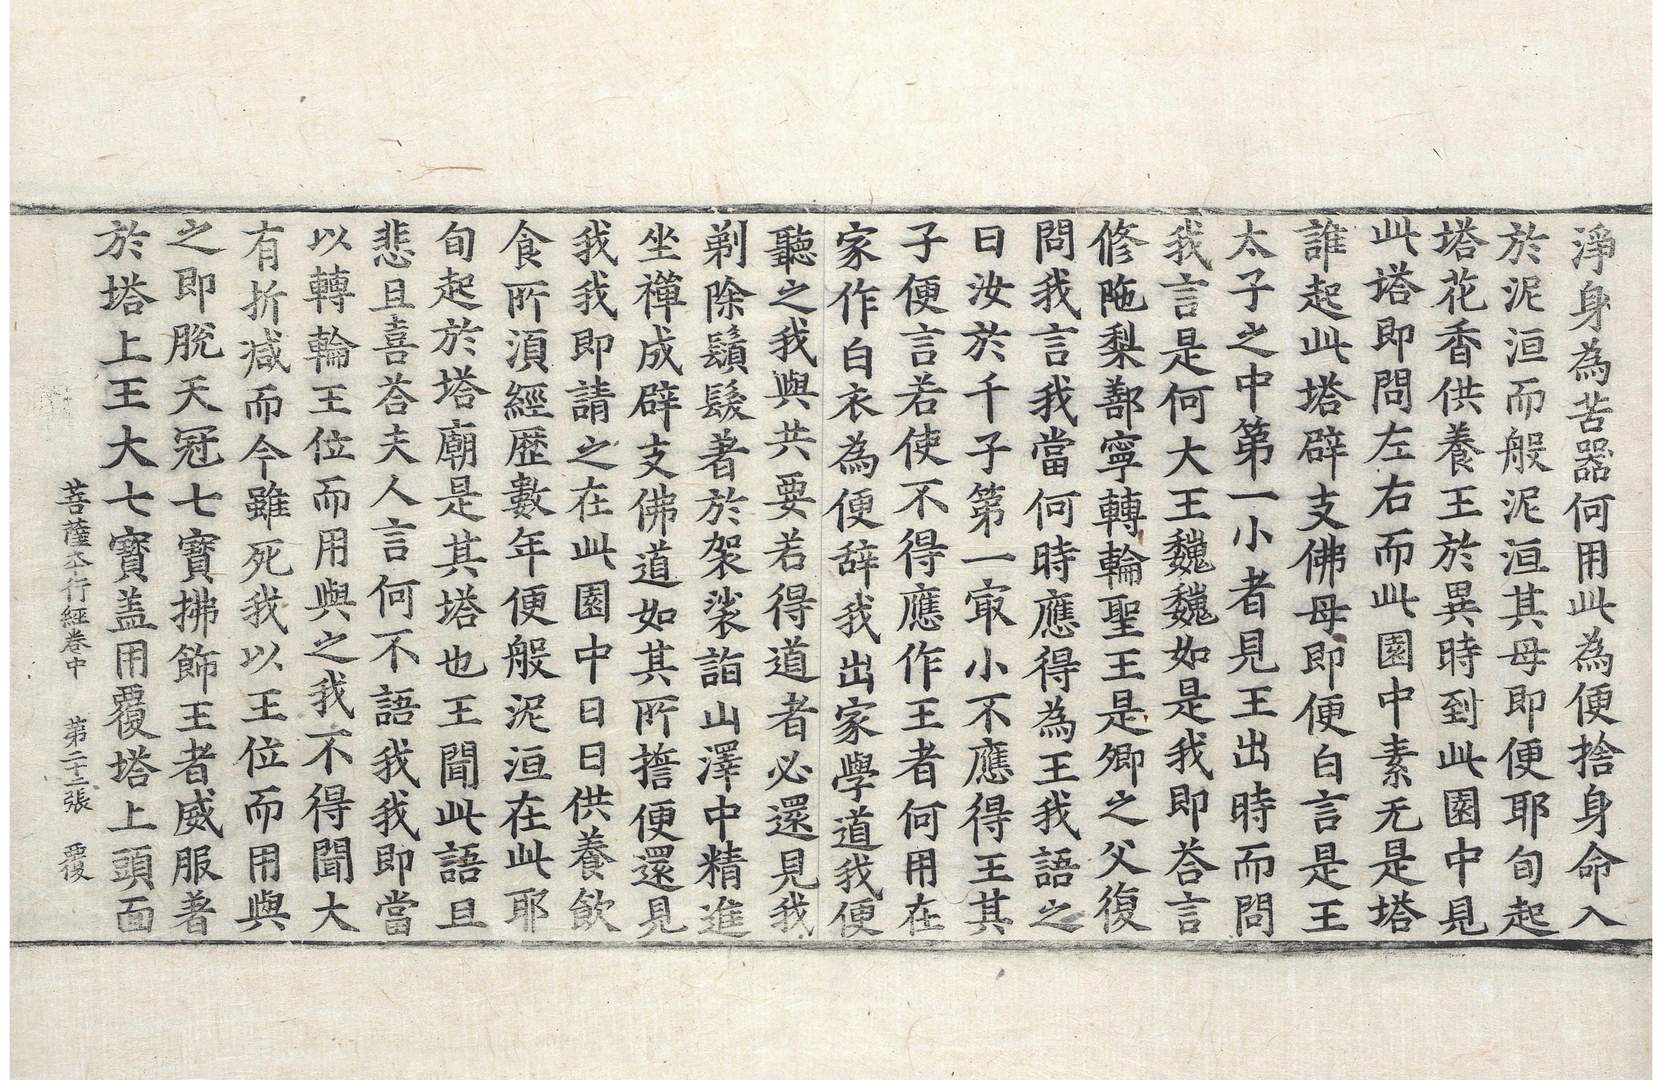 淨身為苦器何用此為便捨身命入
於泥洹而般泥洹其母即便耶旬起
塔花香供養王於異時到此園中見
此塔即問左右而此園中素无是塔
誰起此塔辟支佛母即便白言是王
太子之中第一小者見王出時而問
我言是何大王魏魏如是我即荅言
修陁梨鄯寧轉輪聖王是卿之父復
問我言我當何時應得為王我語之
曰汝於千子第一㝡小不應得王其
子便言若使不得應作王者何用在
家作白衣為便辞我出家學道我便
聽之我與共要若得道者必還見我
剃除鬚髮著於袈裟詣山澤中精進
坐禪成辟支佛道如其所擔便還見
我我即請之在此園中日日供養飲
食所湏經歷數年便般泥洹在此耶
旬起於塔廟是其塔也王聞此語且
悲且喜荅夫人言何不語我我即當
以轉輪王位而用與之我不得聞大
有折减而今雖死我以王位而用與
之即脫天冠七寶拂飾王者威服著
於塔上王大七寶盖用覆塔上頭面
菩薩夲行經卷中 第二十二張 覆